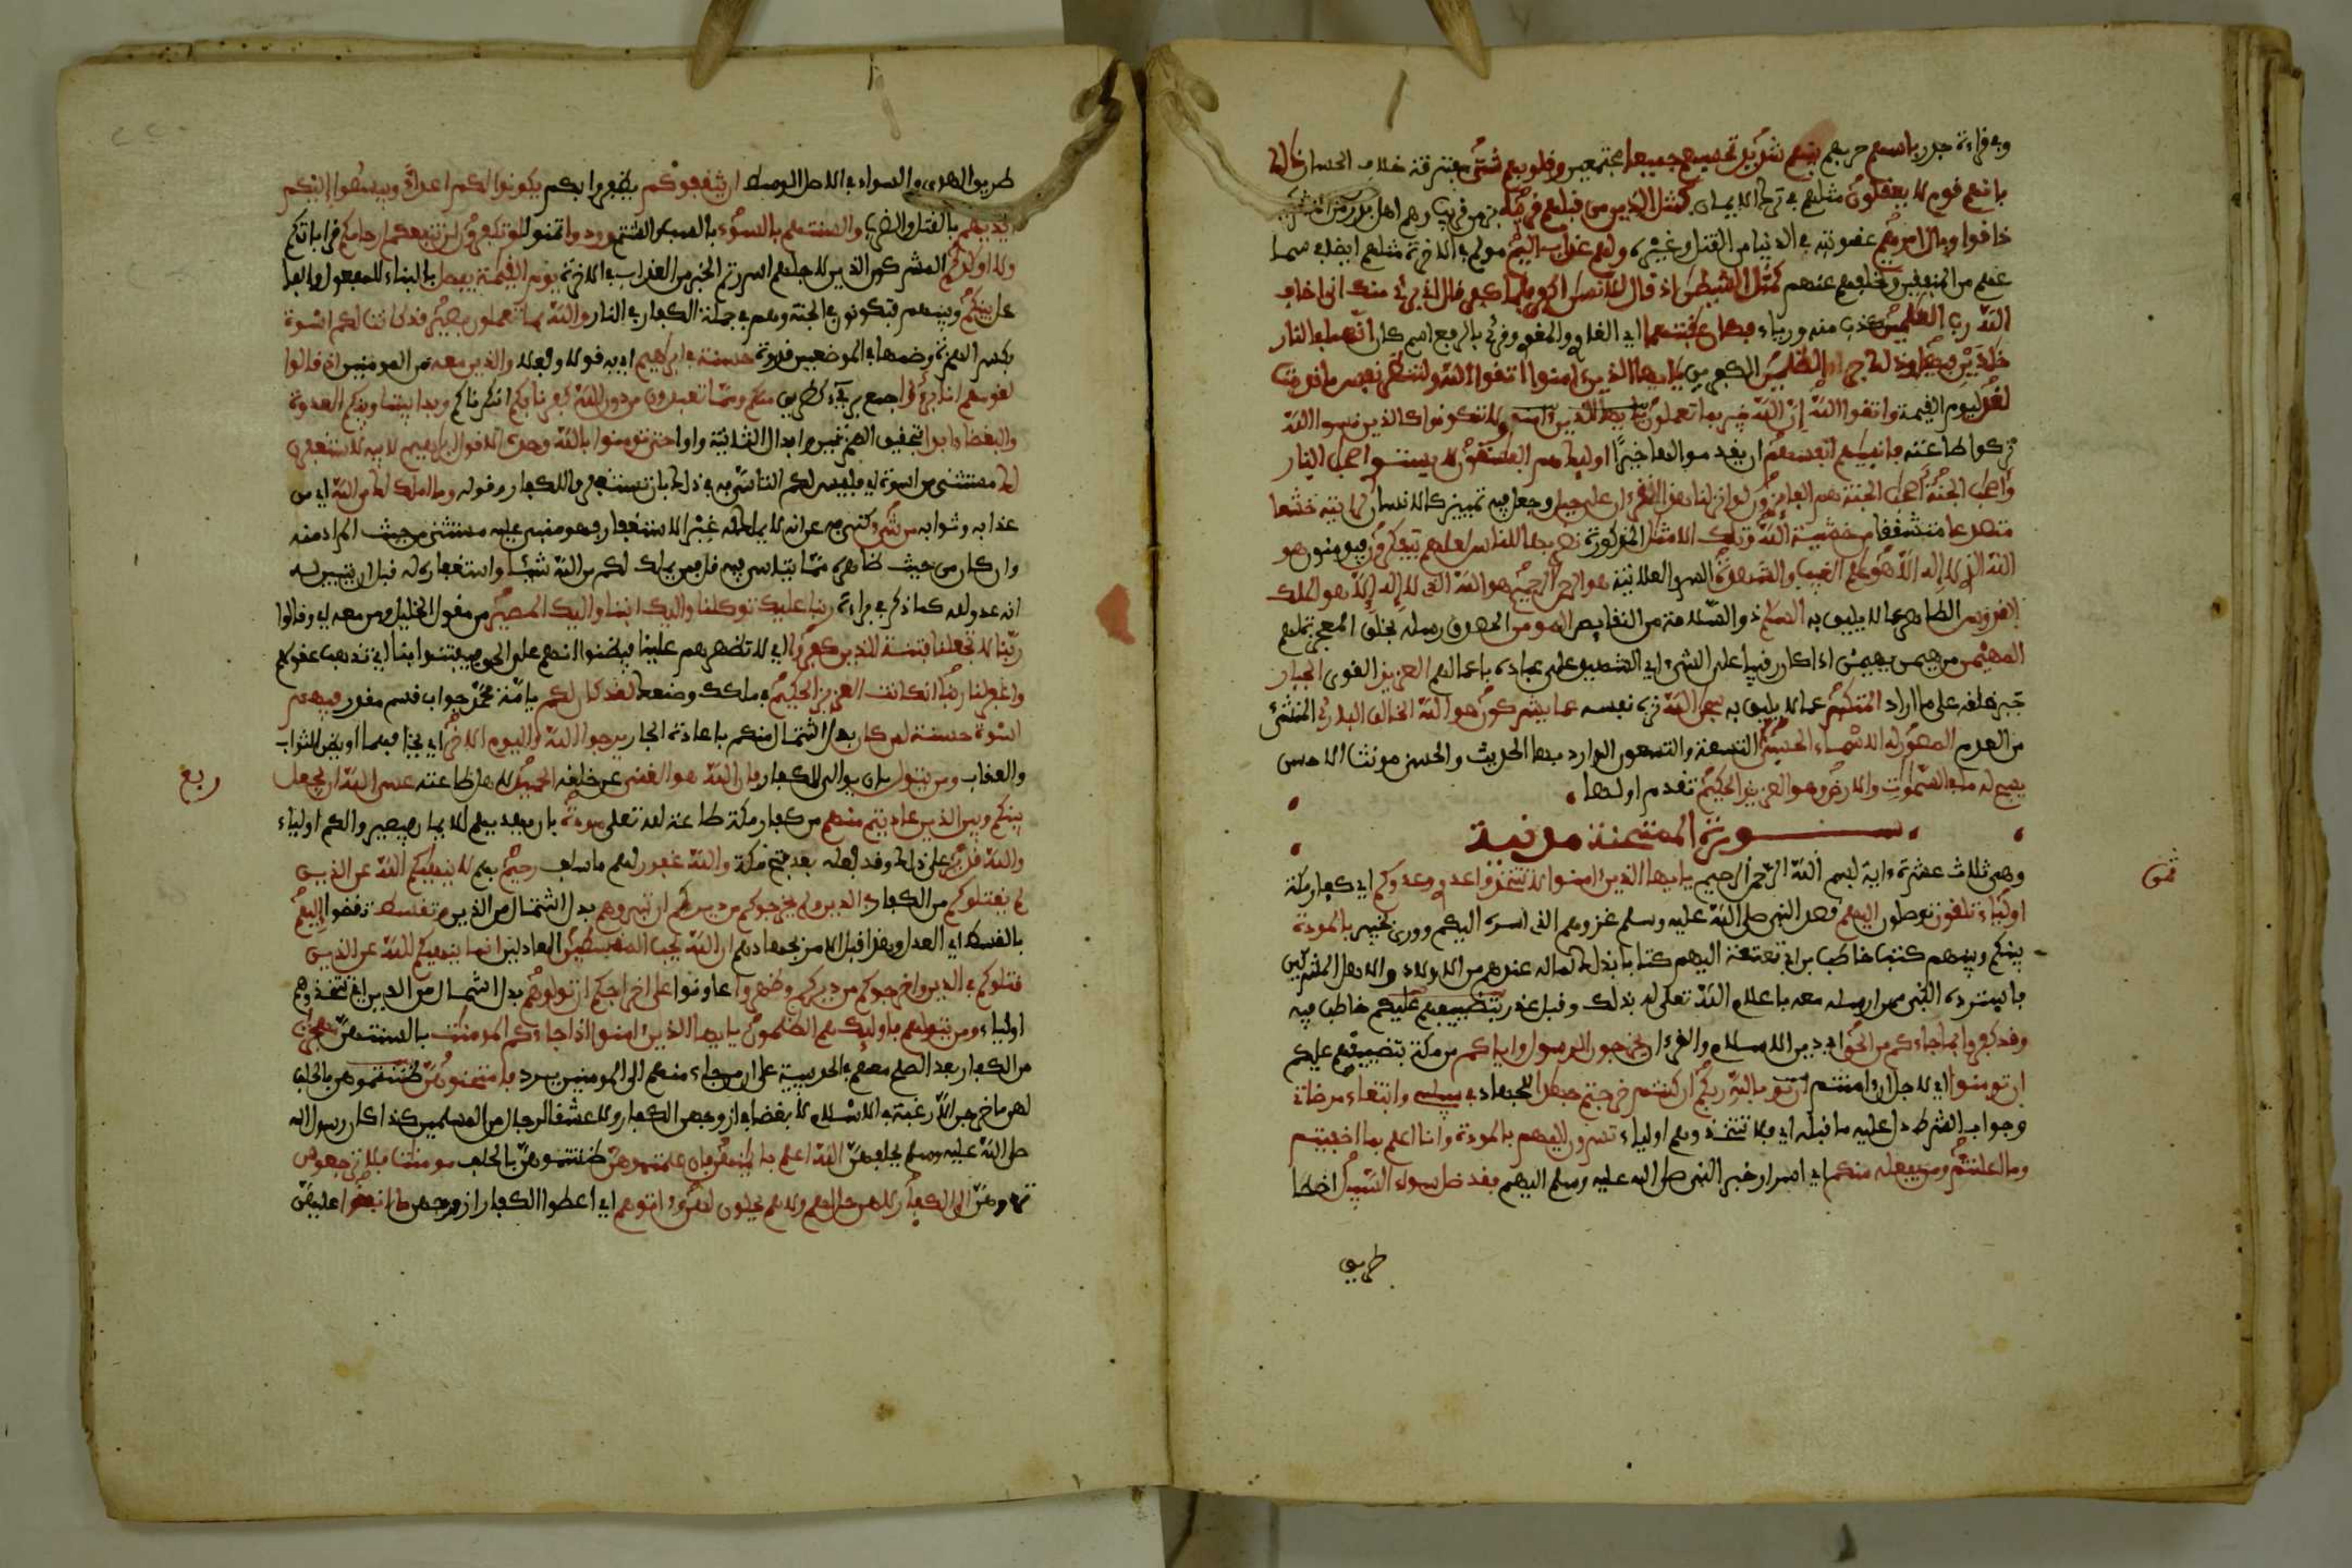 وفي قراءة جدر باسهم حربهم بينهم شديد تحسبهم جميعا مجتمعين وقلوبهم شتى متفرقة خلاف الحسبان ذلك
بانهم قوم لا يعقلون مثلهم في ترك الايمان كمثل الذين من قبلهم قريبا بزمن قريب وهم اهل بدر من المشركين
ذاقوا وبال امرهم عقوبته في الدنيا من القتل وغيره ولهم عذاب اليم مولم في الاخرة مثلهم ايضا في سماعهم
من المنفقين وتخلفهم عنهم كمثل الشيطن اذ قال للانسن اكفر فلما كفر قال اني برئ منك اني اخاف
الله رب العلمين كذبا منه ورياء فكان عقبتهما اي الغاوي والمغوي وقرئ بالرفع اسم كان انهما في النار
خلدين فيها وذلك جزاؤا الظلمين الكفرين يايها الذين ءامنوا اتقوا الله ولتنظر نفس ما قدمت
لغد ليوم القيمة واتقوا الله إن الله خبير بما تعملون ولا تكونوا كالذين نسوا الله
تركوا طاعته فانسيهم انفسهم ان يقدموا لها خيرا اوليك هم الفسقون لا يستوي اصحب النار
واصحب الجنة أصحب الجنة هم الفايزون لو انزلنا هذا القرءان على جبل وجعل فيه تمييز كالانسان لرايته خشعا
متصدعا متشققا من خشية الله وتلك الامثل المذكورة نضربها للناس لعلهم يتفكرون فيومنون هو
الله الذي لا إله الا هو علم الغيب والشهدة السر والعلانية هو الرحمن الرحيم هو الله الذي لا إله إلا هو الملك
القدوس الطاهر عما لا يليق به السلم ذو السلامة من النقايص المومن المصدق رسله بخلق المعجزة لهم
المهيمن من هيمن يهيمن اذا كان رقيبا على الشيء اي الشهيد على عباده باعمالهم العزيز القوي الجبار
جبر خلقه على ما اراد المتكبر عما لا يليق به سبحن الله نزه نفسه عما يشركون هو الله الخالق البارئ المنشئ
من العدم المصور له الاسماء الحسنى التسعة والتسعون الوارد بها الحديث والحسنى مونث الاحسن
يسبح له ما في السموت والارض وهو العزيز الحكيم تقدم اولها
سورة الممتحنة مدنية
وهي ثلاث عشرة ءاية بسم الله الرحمن الرحيم يايها الذين ءامنوا لا تتخذوا عدوي وعدوكم اي كفار مكة
اولياء تلقون توصلون إليهم قصد النبي صلى الله عليه وسلم غزوهم الذي اسره اليكم وورى بخيبر بالمودة
بينكم وبينهم كتب حاطب بن ابي بلتعة اليهم كتابا بذلك لما له عندهم من الاولاد والاهل المشركين
فاسترده النبي ممن ارسله معه باعلام الله تعلى له بذلك وقبل عذر حاطب فيه
وقد كفروا بما جاءكم من الحق اي دين الاسلام والقرءان يخرجون الرسول واياكم من مكة بتضييقهم عليكم
ان تومنوا اي لاجل ان ءامنتم بالله ربكم ان كنتم خرجتم جهدا للجهاد في سبيلي وابتغاء مرضاتي
وجواب الشرط دل عليه ما قبله اي فلا تتخذوهم اولياء تسرون إليهم بالمودة وانا اعلم بما اخفيتم
وما اعلنتم ومن يفعله منكم اي اسرار خبر النبي صلى الله عليه وسلم اليهم فقد ضل سواء السبيل اخطا
طريق
ثمن
طريق الهدى والسواء في الاصل الوسط ان يثقفوكم يظفروا بكم يكونوا لكم اعداء ويبسطوا إليكم
ايديهم بالقتل والضرب والسنتهم بالسوء بالسب والشتم وودوا تمنوا لو تكفرون لن تنفعكم ارحامكم قراباتكم
ولا اولدكم المشركون الذين لاجلهم اسررتم الخبر من العذاب في الاخرة يوم القيمة يفصل بالبناء للمفعول والفا
عل بينكم وبينهم فتكونون في الجنة وهم في جملة الكفار في النار والله بما تعملون بصير قد كانت لكم اسوة
بكسر الهمزة وضمها في الموضعين قدوة حسنة في ابرهيم اي به قولا وفعلا والذين معه من المومنين اذ قالوا
لقومهم انا برءؤا جمع بريء كظريف منكم ومما تعبدون من دون الله كفرنا بكم انكرناكم وبدا بيننا وبينكم العدوة
والبغضاء ابدا بتحقيق الهمزتين وابدال الثانية واوا حتى تومنوا بالله وحده الا قول ابرهيم لابيه لاستغفرن
لك مستثنى من اسوة اي فليس لكم التاسي به في ذلك بان تستغفروا للكفار وقوله وما املك لك من الله اي من
عذابه وثوابه من شيء كنى به عن انه لا يملك له غير الاستغفار فهو مبني عليه مستثنى من حيث المراد منه
وان كان من حيث ظاهره مما يتاسى فيه قل فمن يملك لكم من الله شيئا واستغفاره له قبل ان يتبين له
انه عدو لله كما ذكر في براءة ربنا عليك توكلنا واليك انبنا واليك المصير من مقول الخليل ومن معه اي وقالوا
ربنا لا تجعلنا فتنة للذين كفروا اي لا تظهرهم علينا فيظنوا انهم على الحق فيفتتنوا بنا اي تذهب عقولهم
واغفر لنا ربنا انك انت العزيز الحكيم في ملكك وصنعك لقد كان لكم يا امة محمد جواب قسم مقدر فيهم
اسوة حسنة لمن كان بدل اشتمال منكم باعادة الجار يرجوا الله واليوم الاخر اي يخافهما او يظن الثواب
والعقاب ومن يتول بان يوالي الكفار فان الله هو الغني عن خلقه الحميد لاهل طاعته عسى الله ان يجعل
بينكم وبين الذين عاديتم منهم من كفار مكة طاعة لله تعلى مودة بان يهديهم للايمان فيصيروا لكم اولياء
والله قدير على ذلك وقد فعله بعد فتح مكة والله غفور لهم ما سلف رحيم بهم لا ينهيكم الله عن الذين
لم يقتلوكم من الكفار في الدين ولم يخرجوكم من ديركم ان تبروهم بدل اشتمال من الذين وتقسطوا تفضوا إليهم
بالقسط اي العدل وهذا قبل الامر بجهادهم ان الله يحب المقسطين العادلين انما ينهيكم الله عن الذين
قتلوكم في الدين واخرجوكم من ديركم وظهروا عاونوا على اخراجكم ان تولوهم بدل اشتمال من الذين اي تتخذوهم
اولياء ومن يتولهم فاوليك هم الظلمون يايها الذين ءامنوا اذا جاءكم المومنت بالسنتهن مهجرت
من الكفار بعد الصلح معهم في الحديبية على ان من جاء منهم الى المومنين يرد فامتحنوهن بالحلف
انهن ما خرجن الا رغبة في الاسلام لا بغضا لازوجهن الكفار ولا عشقا لرجال من المسلمين كذا كان رسول الله
صلى الله عليه وسلم يحلفهن الله اعلم بايمنهن فان علمتموهن ظننتموهن بالحلف مومنت فلا ترجعوهن
تردوهن الى الكفار لا هن حل لهم ولا هم يحلون لهن وءاتوهم اي اعطوا الكفار ازوجهن ما انفقوا عليهن
ربع